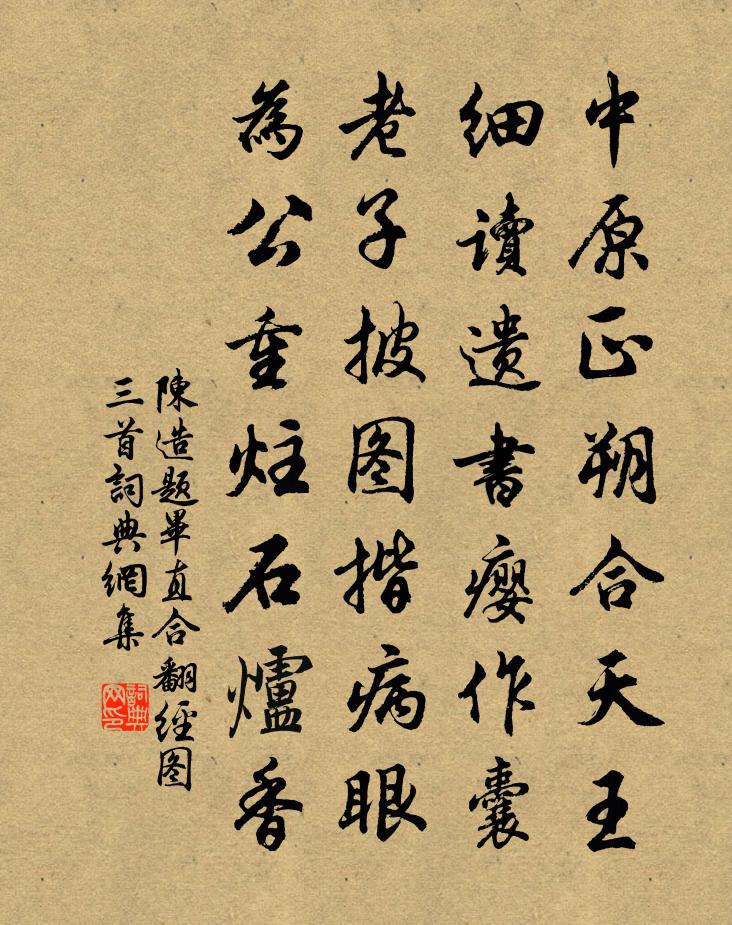 中原正朔合天王
细讀遗書瘿作囊
老子披图揩病眼
為公重炷石爐香
陳造題畢直合翻經图
三首詞典網集
詞典
网印